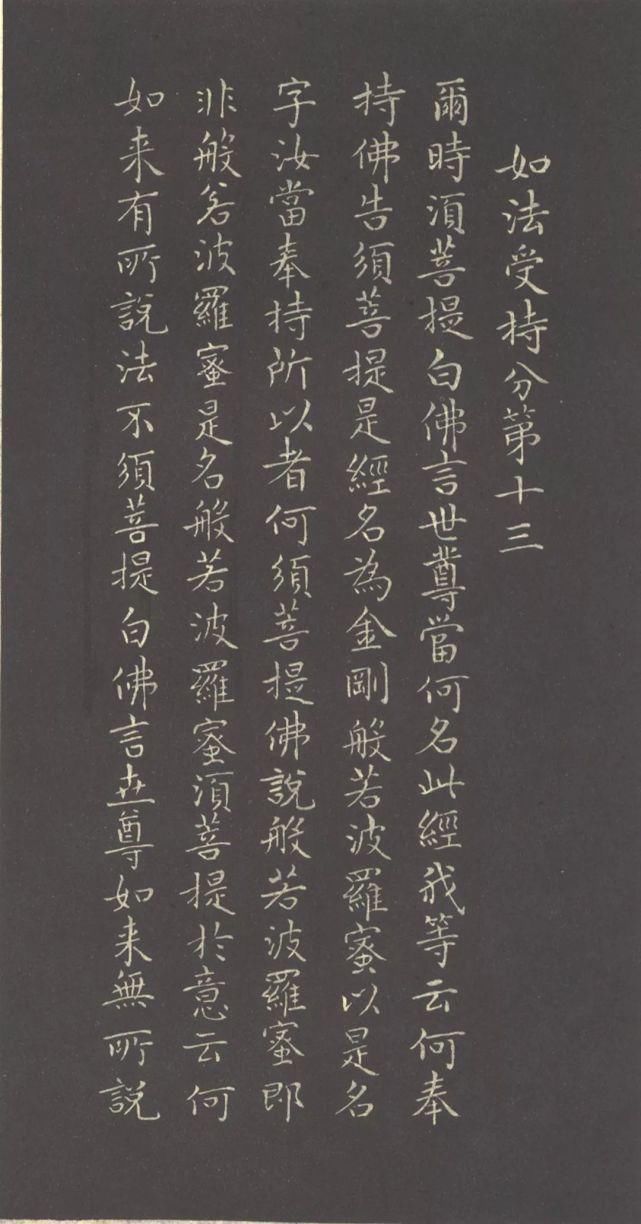 如法受持分第十三
爾時須菩提白佛言世尊當何名此經我等云何奉
持佛告須菩提是經名為金剛般若波羅蜜以是名
字汝當奉持所以者何須菩提佛說般若波羅蜜即
非般若波羅蜜是名般若波羅蜜須菩提於意云何
如来有所說法不須菩提白佛言世尊如来無所説